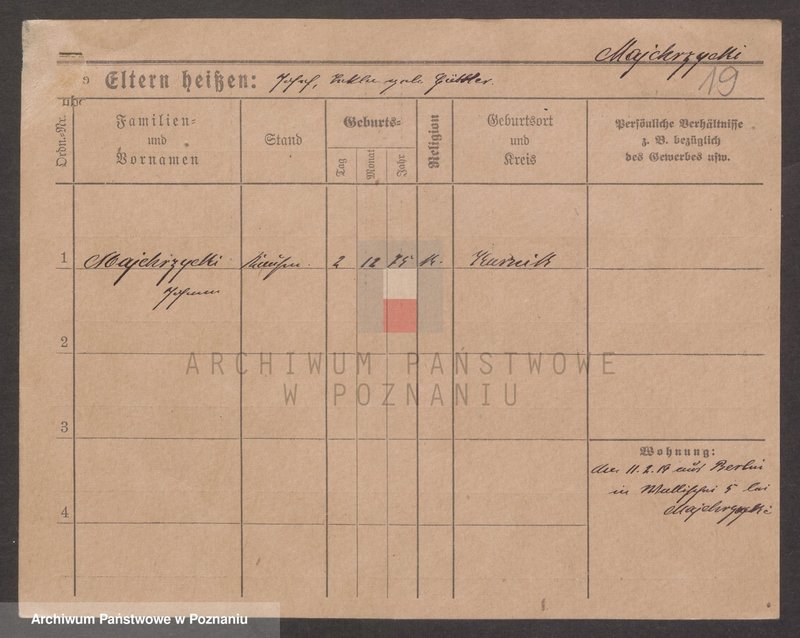 Majchrzycki
19
9 Eltern heißen: Josef, Thekla geb. Güttler.
Ordn.-Nr.
Familien-
und
Vornamen
Stand
Geburts-
Tag
Monat
Jahr
Religion
Geburtsort
und
Kreis
Persönliche Verhältnisse
z. B. bezüglich
des Gewerbes usw.
1 Majchrzycki 2 12 75 k. Kurnik
Johann
2
3
4
Wohnung:
11.2.19 aus Berlin
in Wallischei 5 bei
Majchrzycki
ARCHIWUM PAŃSTWOWE
W POZNANIU
Archiwum Państwowe w Poznaniu